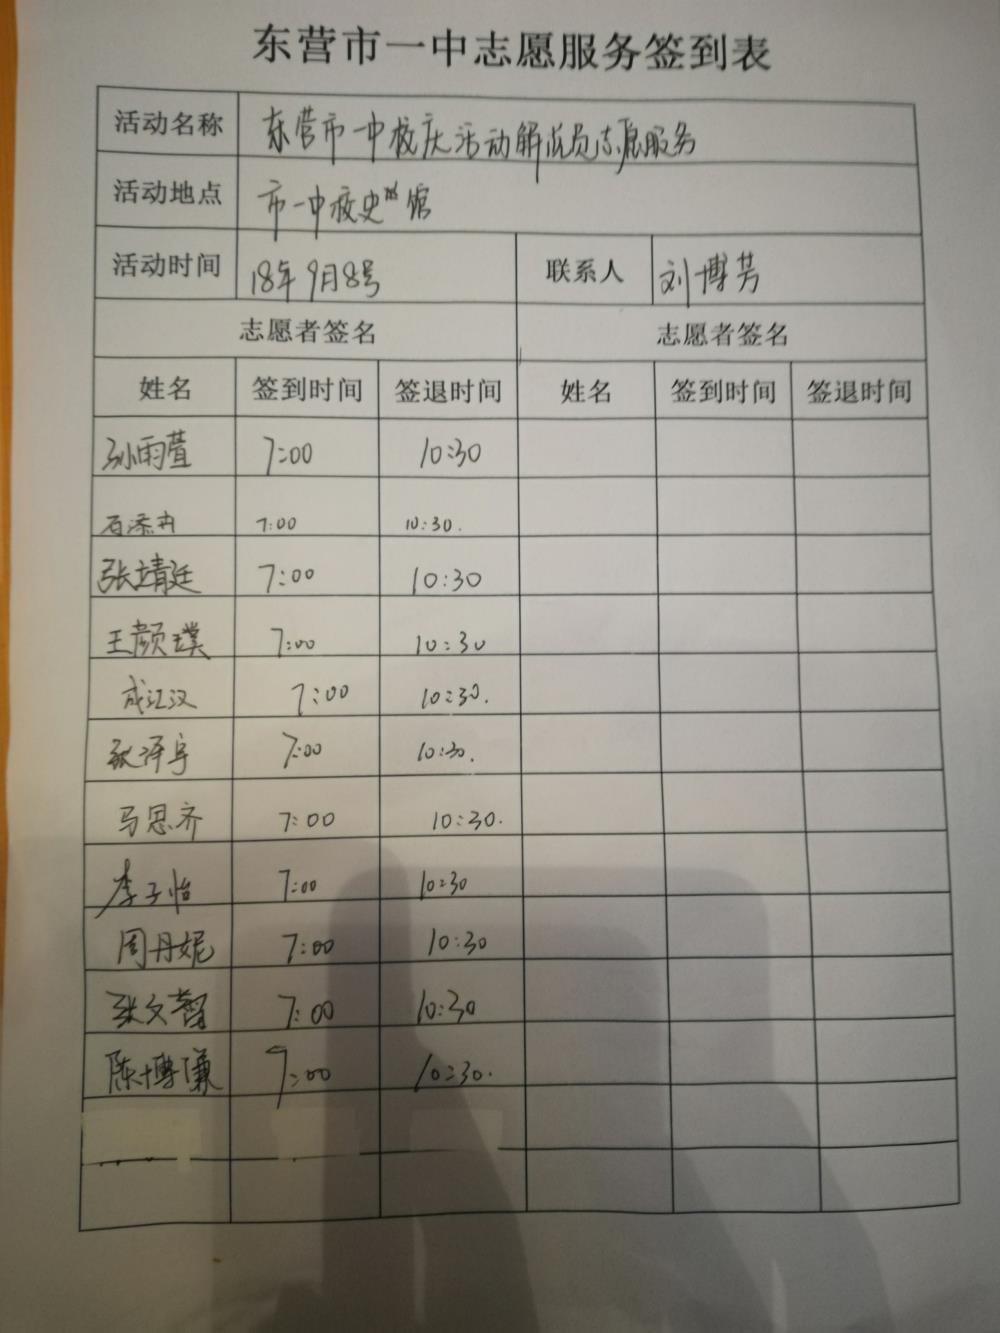 东营市一中志愿服务签到表
活动名称 东营市一中校庆活动解说员志愿服务
活动地点 市一中校史馆
活动时间 18年9月8号 联系人 刘博芳
志愿者签名 志愿者签名
姓名 签到时间 签退时间 姓名 签到时间 签退时间
孙雨萱 7:00 10:30
石添冉 7:00 10:30.
张靖廷 7:00 10:30
王颜璞 7:00 10:30
成江汉 7:00 10:30.
张泽宇 7:00 10:30.
马思齐 7:00 10:30.
李子怡 7:00 10:30
周丹妮 7:00 10:30
张文 7:00 10:30
陈博谦 7:00 10:30.